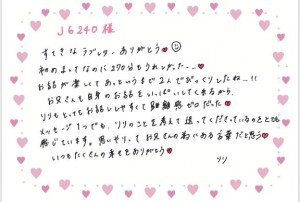 J6240様
すてきなラブレターありがとう♥☺
初めましてなのに270分もうれしかった...♥
お話が楽しくてあっというまで2人でびっくりしたね...!!
お兄さんも自身のお話をいっぱいしてくれるから、
リリもとってもお話ししやすくて距離感ゼロだった♥
メッセージ1つでも、リリのことを考えて送ってくださっているのをとても
感じています。思いやりってお兄さんの為にある言葉だと思う♥
いつもたくさんの幸せをありがとう♥
リリ